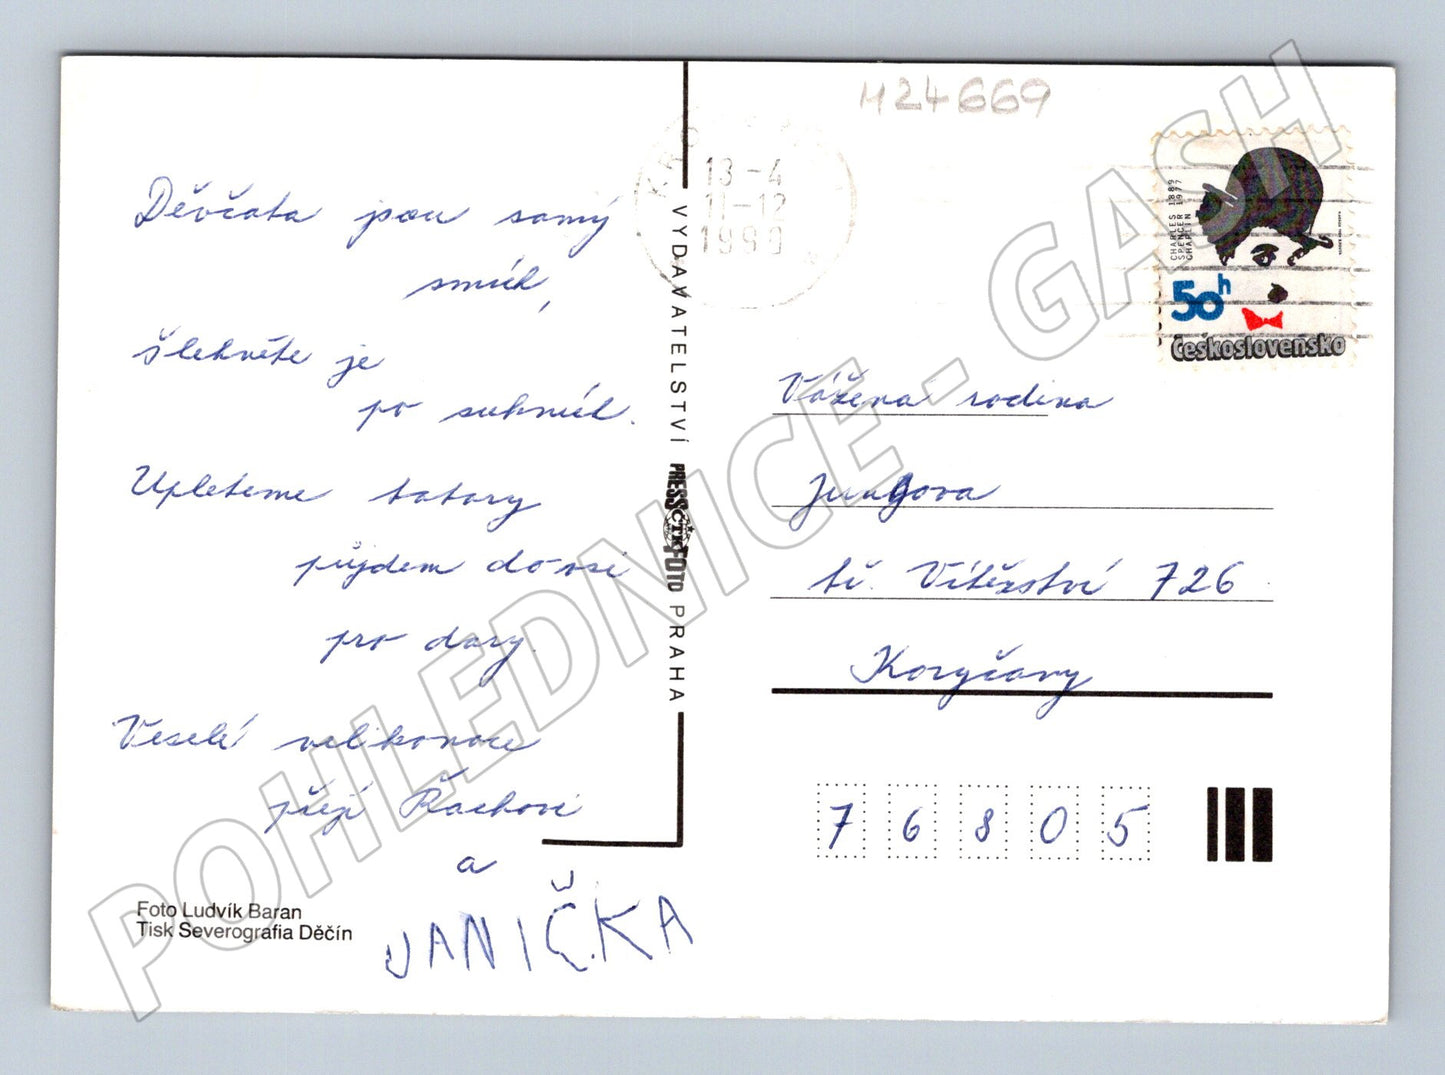 M24669
13-4
11-12
1990
CHARLES 1889
SPENCER 1977
CHAPLIN
50h
Československo
Děvčata jsou samý
smích,
šlehněte je
po sukních.
Upleteme tatary
půjdem do vsi
pro dary.
Veselé velikonoce
přejí Řachovi
a
JANIČKA
Foto Ludvík Baran
Tisk Severografia Děčín
VYDAVATELSTVÍ PRESSFOTO PRAHA
ČTK
Vážená rodina
Jungova
tř. Vítězství 726
Koryčany
76805
POHLEDNICE - GASH